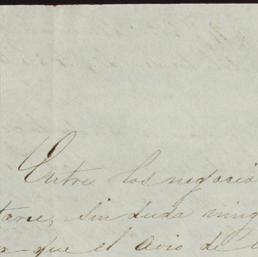 Entre los negocio
tares, sin duda ning
que el avio de